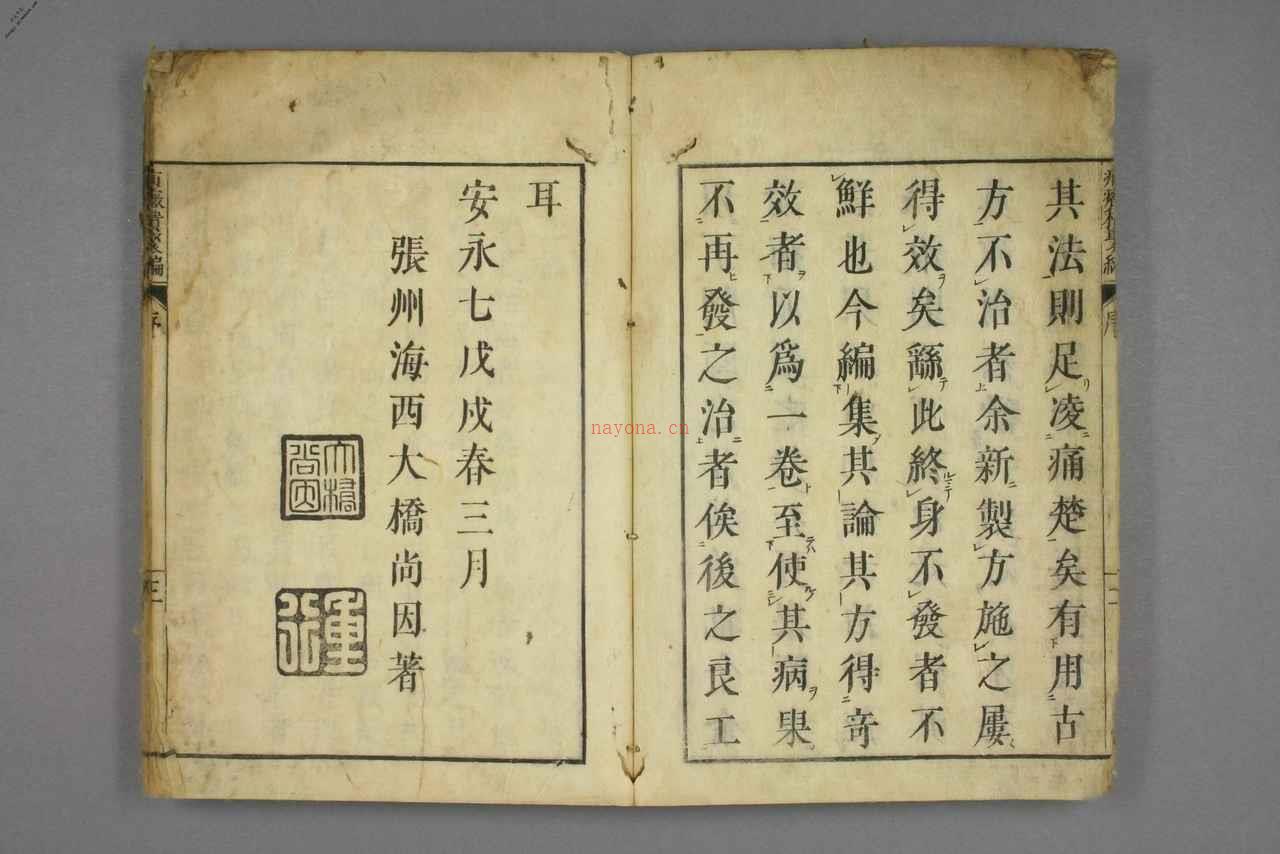 其法則足凌痛楚矣有用古
方不治者余新製方施之屢
得效矣繇此終身不發者不
鮮也今編集其論其方得奇
效者以爲一卷至使其病果
不再發之治者俟後之良工
耳
安永七戊戌春三月
張州海西大橋尚因著
大橋尚因
重
序
nayona.cn